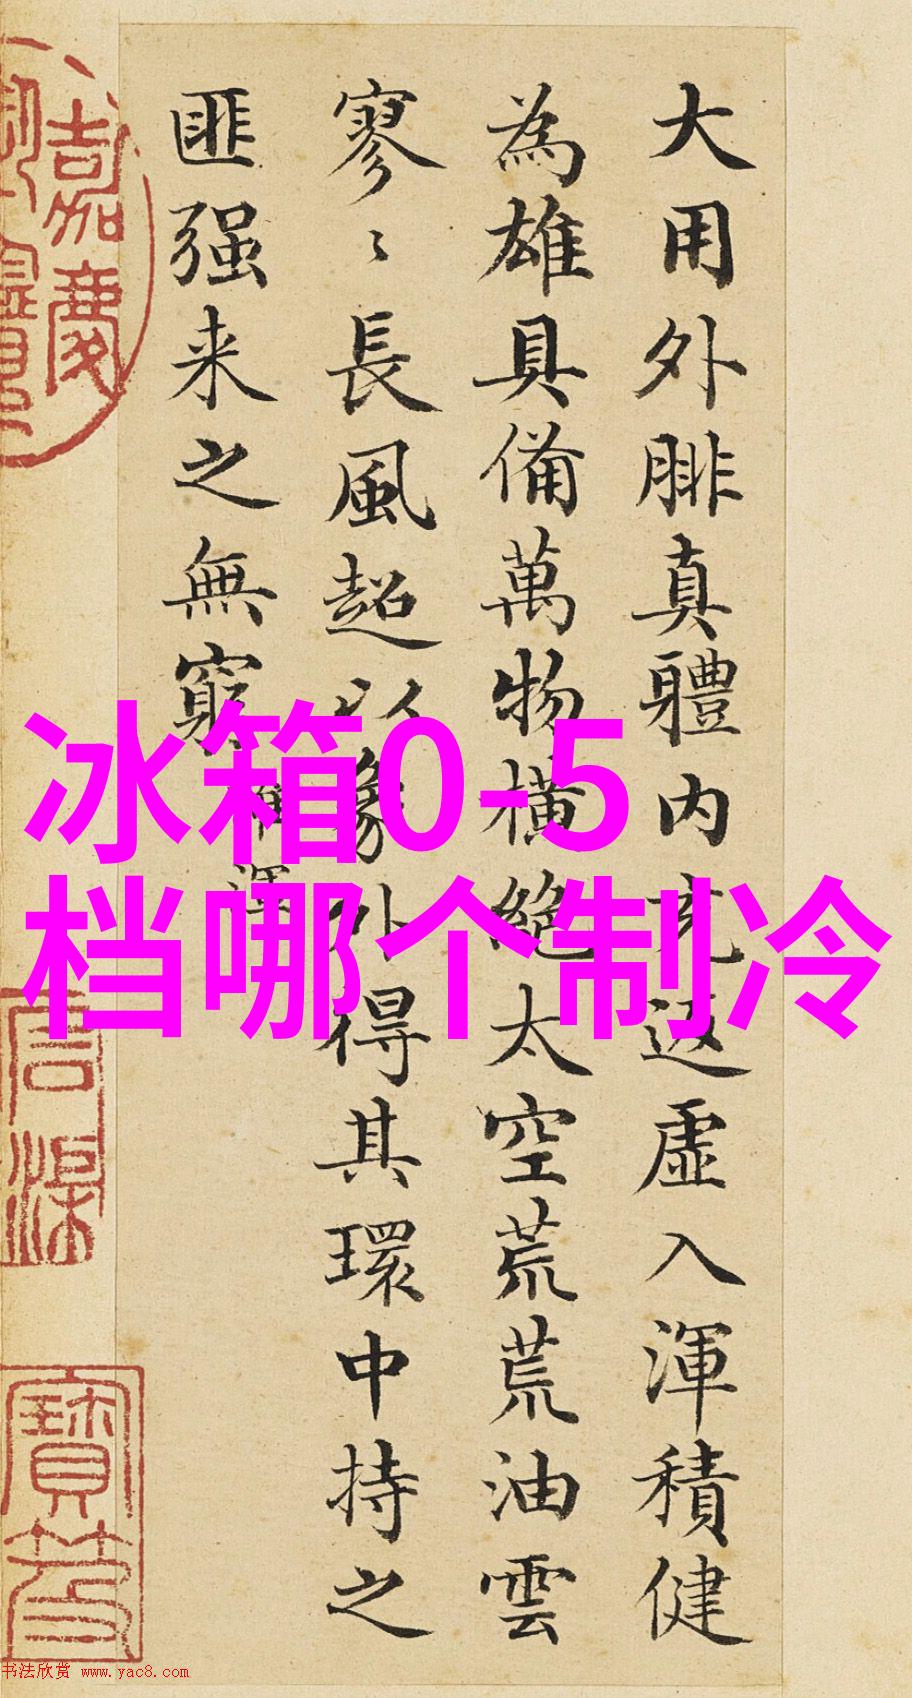 大用外腓真體内充返虛入渾積健
為雄具備萬物橫絕太空荒荒油雲
寥〻長風超以象外得其環中持之
匪强来之無窮
雄渾
冰箱0-5
档哪个制冷
嘉慶
寶笈
书法欣赏 www.yac8.com